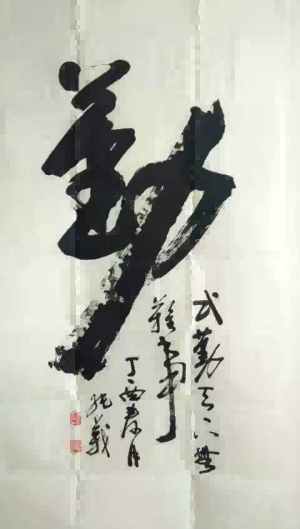 勤
弌勤天下無
難事
丁酉春月
義